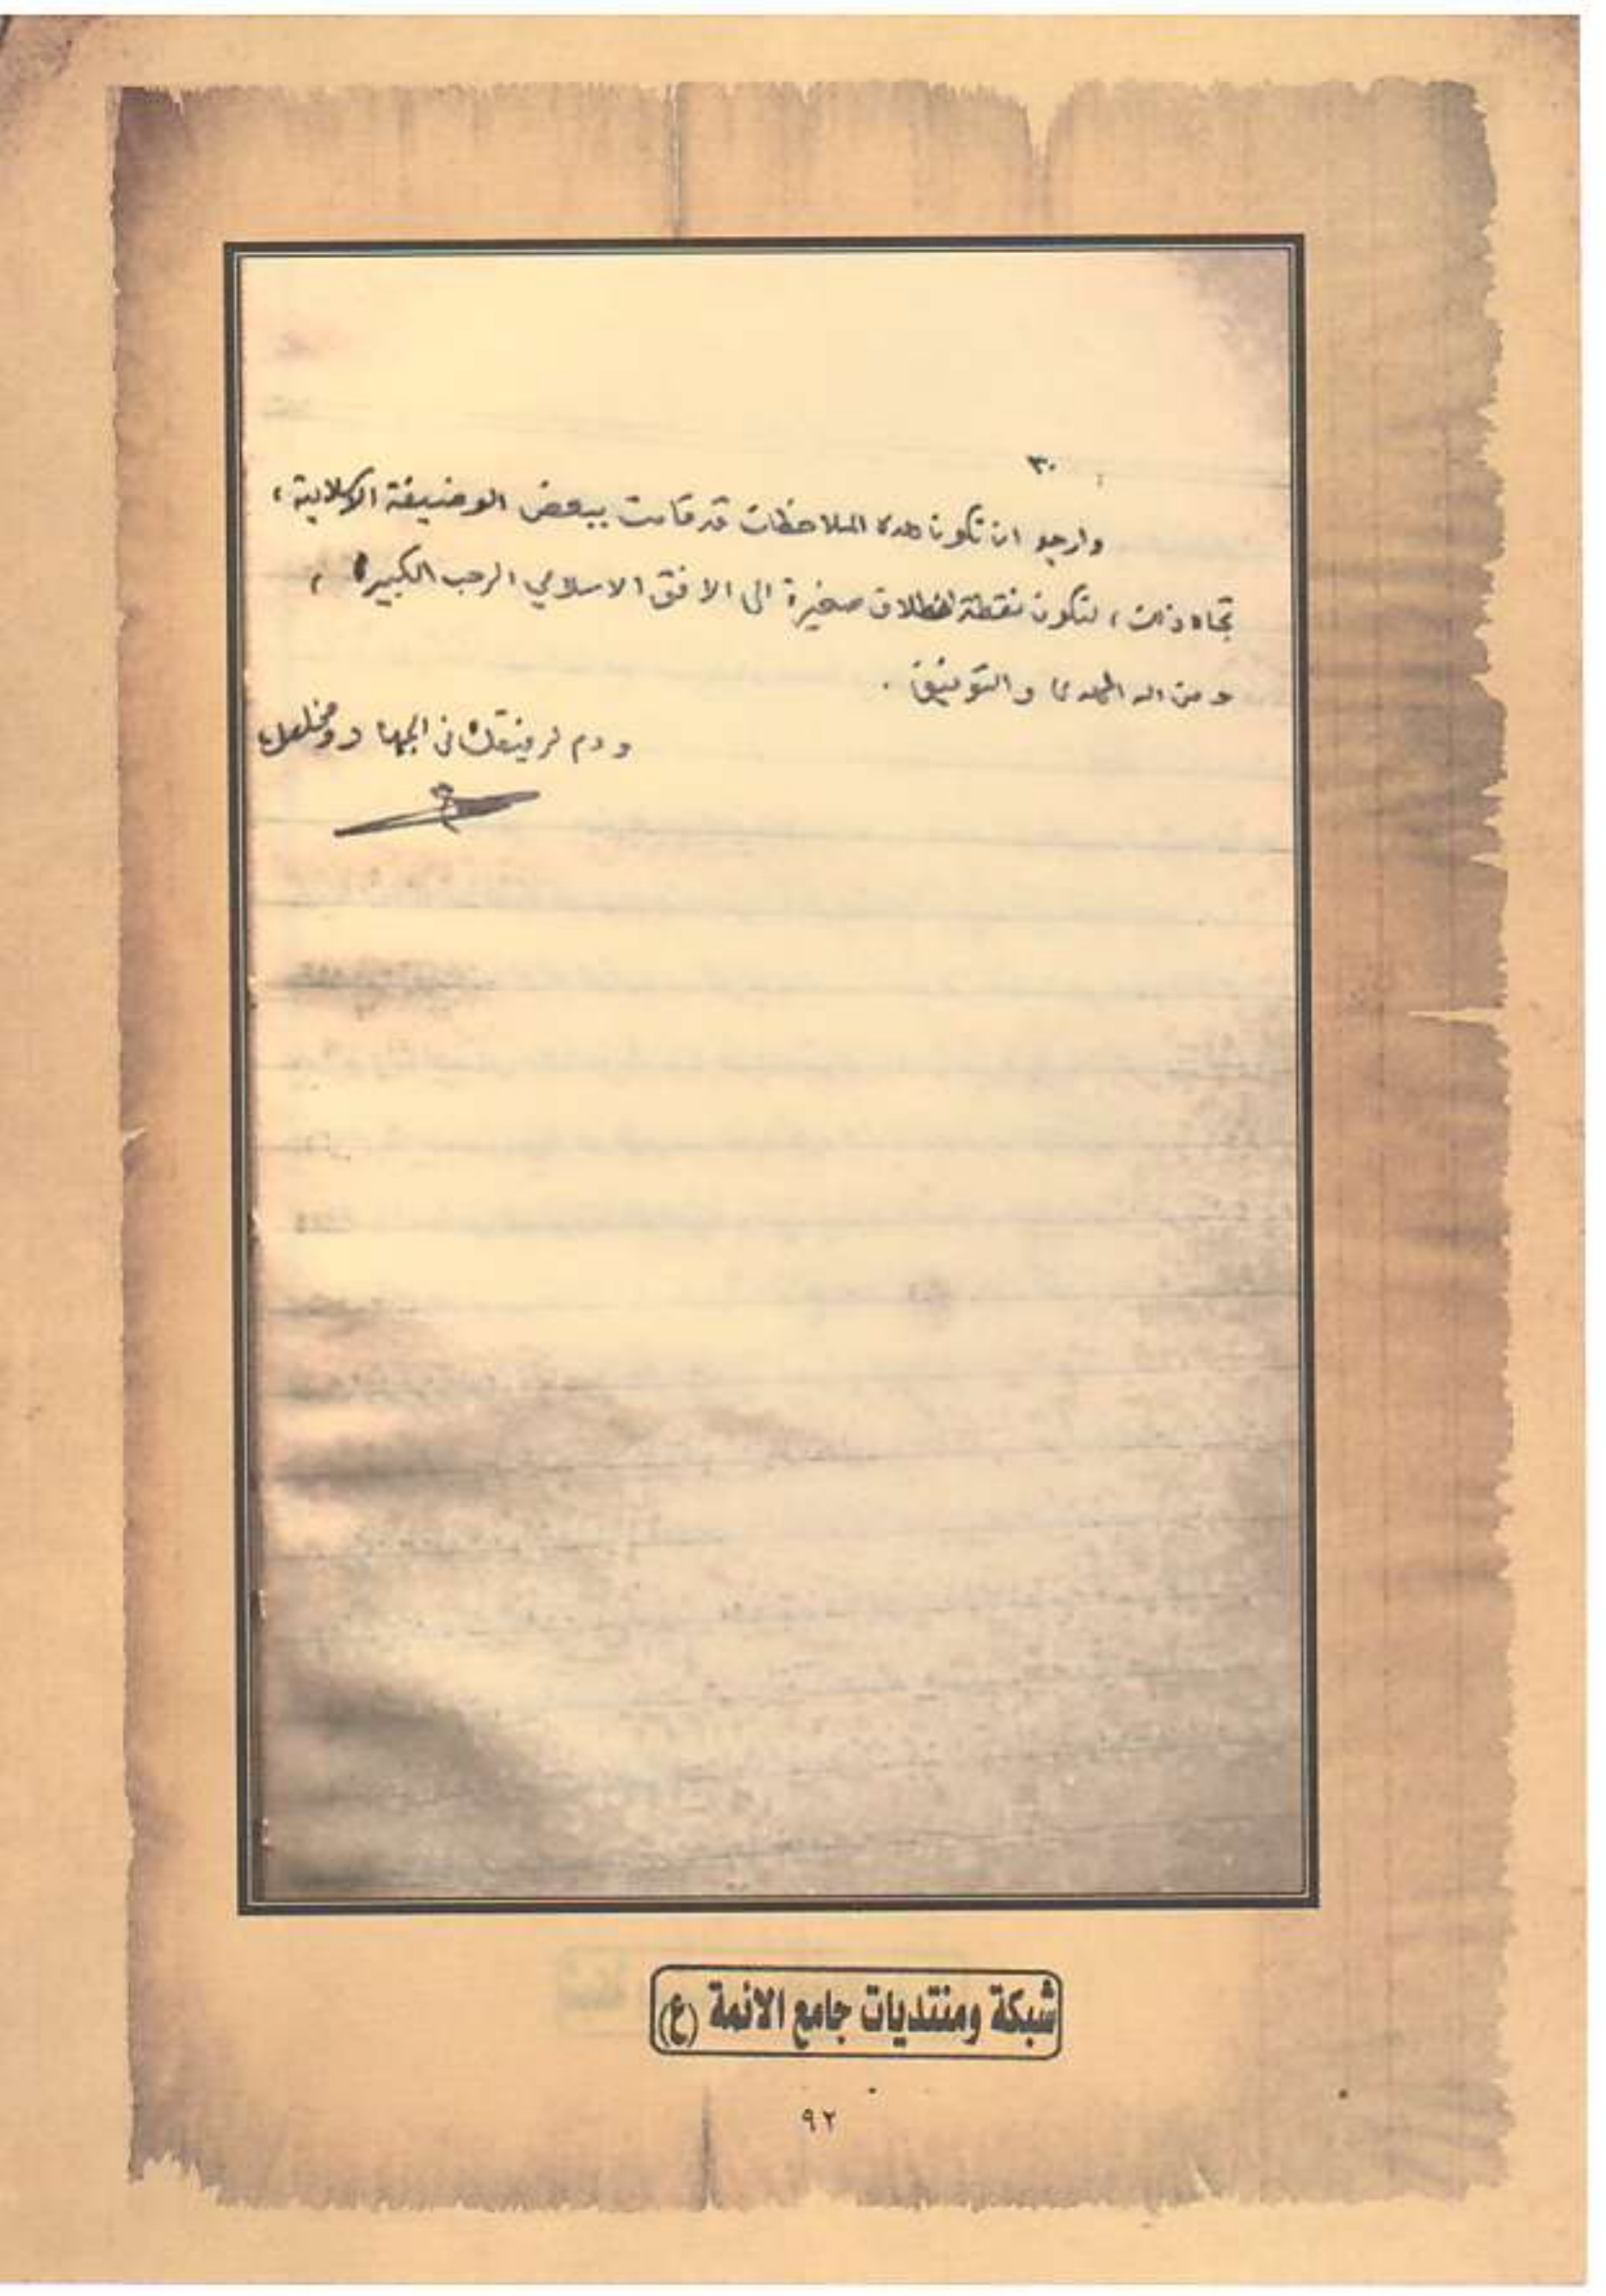 ٣٠
وارجو ان تكون هذه الملاحظات قد قامت ببعض الوضيفة الاسلامية ،
تجاه ذلك ، لتكون نقطة انطلاق صغيرة الى الافق الاسلامي الرحب الكبير ،
ومن الله الهدى والتوفيق .
ودم لرفيقك في الجهاد ومخلصك
شبكة ومنتديات جامع الائمة (ع)
٩٢